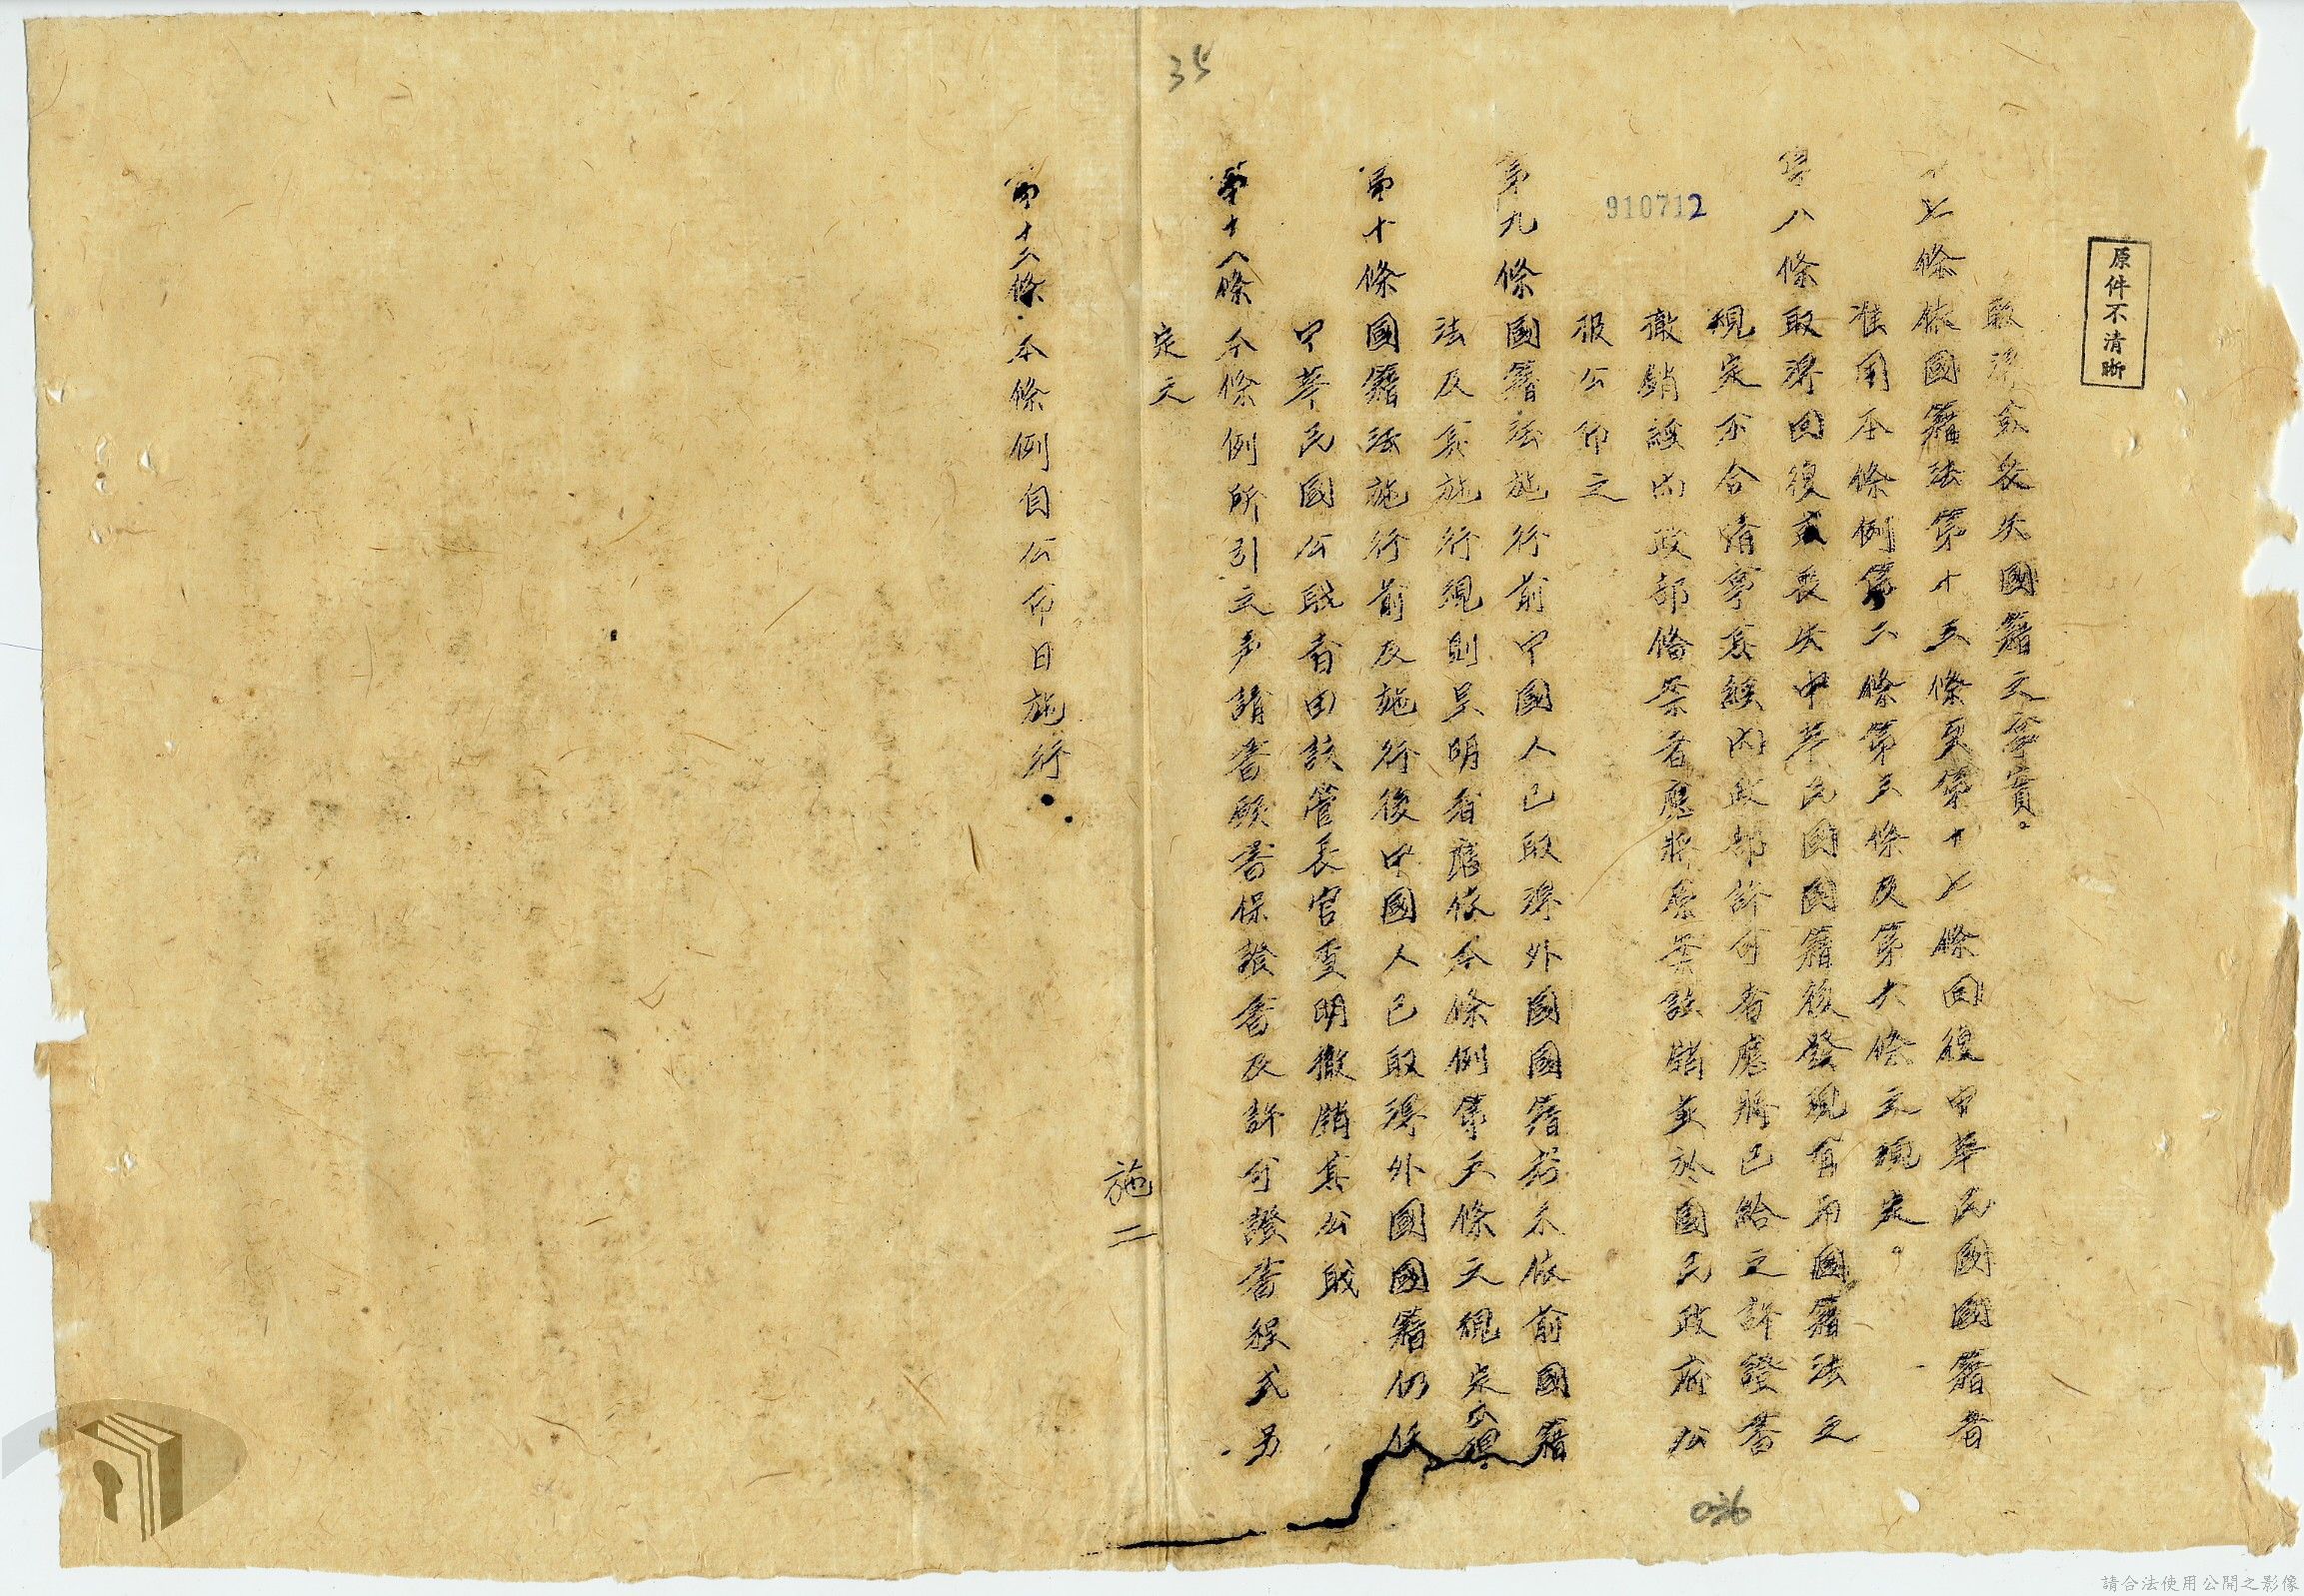 35
原件不清晰
取得或喪失國籍之事實。
七條 依國籍法第十五條至第十七條回復中華民國國籍者
准用本條例第二條第三條及第六條之規定。
第八條 取得回復或喪失中華民國國籍後發現有與國籍法之
規定不合情事其經內政部許可者應將已給之許證書
撤銷經內政部備案者應將原案註銷並於國民政府公
報公布之
910712
第九條 國籍法施行前中國人已取得外國國籍若不依前國籍
法及其施行規則呈明者應依本條例第五條之規定
第十條 國籍法施行前及施行後中國人已取得外國國籍仍任
中華民國公職者由該管長官查明撤銷其公職
第十一條 本條例所引之聲請書願書保證書及許可證書程式另
定之
施二
第十二條 本條例自公布日施行。
036
請合法使用公開之影像